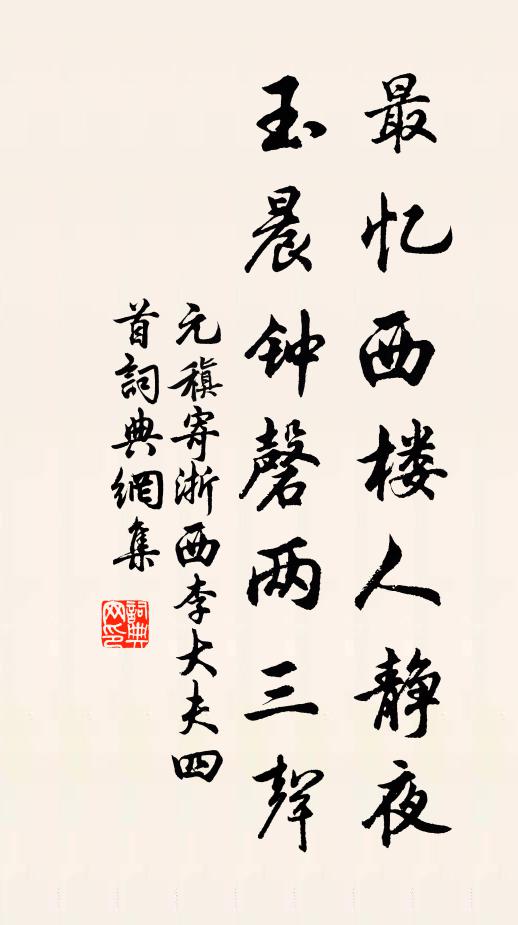 最忆西楼人静夜
玉晨钟磬两三聲
元稹寄浙西李大夫四
首詞典網集
詞典网印